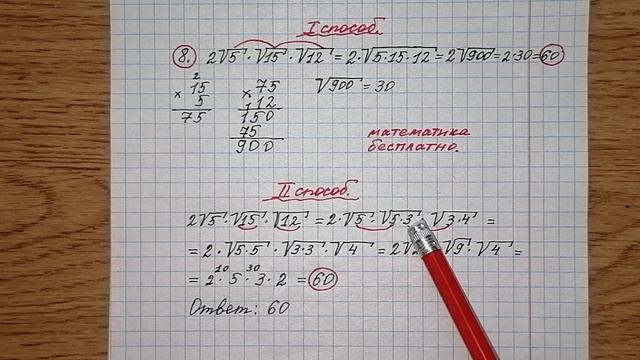 I способ.
8. 2√5 · √15 · √12 = 2 · √5·15·12 = 2√900 = 2·30 = 60
2
× 15
5
75
× 75
12
150
75
900
√900 = 30
математика
бесплатно.
II способ.
2√5 · √15 · √12 = 2 · √5 · √5·3 · √3·4 =
= 2 · √5·5 · √3·3 · √4 = 2√2 √9 · √4 =
10 30
= 2 · 5 · 3 · 2 = 60
Ответ: 60